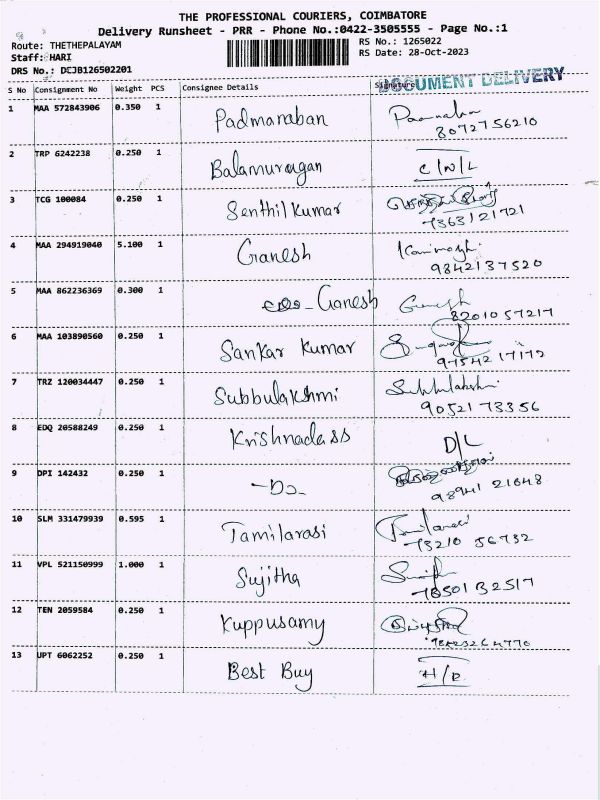 THE PROFESSIONAL COURIERS, COIMBATORE
Delivery Runsheet - PRR - Phone No.:0422-3505555 - Page No.:1
Route: THETHEPALAYAM
Staff: HARI
DRS No.: DCJB126502201
RS No.: 1265022
RS Date: 28-Oct-2023
DOCUMENT DELIVERY
S No Consignment No Weight PCS Consignee Details Signature
1 MAA 572843906 0.350 1 Padmanaban
8072756210
2 TRP 6242238 0.250 1 Balamurugan C/N/L
3 TCG 100084 0.250 1 Senthil Kumar
7363121721
4 MAA 294919040 5.100 1 Ganesh
9842137520
5 MAA 862236369 0.300 1 Ganesh Ganesh
8201057217
6 MAA 103890560 0.250 1 Sankar Kumar
9754217172
7 TRZ 120034447 0.250 1 Subbulakshmi Subbulakshmi
9052173356
8 EDQ 20588249 0.250 1 Krishnadass D/L
9 DPI 142432 0.250 1 -Do-
98941 21648
10 SLM 331479939 0.595 1 Tamilarasi Tamilarasi
73210 56732
11 VPL 521150999 1.000 1 Sujitha
78501 32517
12 TEN 2059584 0.250 1 Kuppusamy
13 UPT 6062252 0.250 1 Best Buy H/R